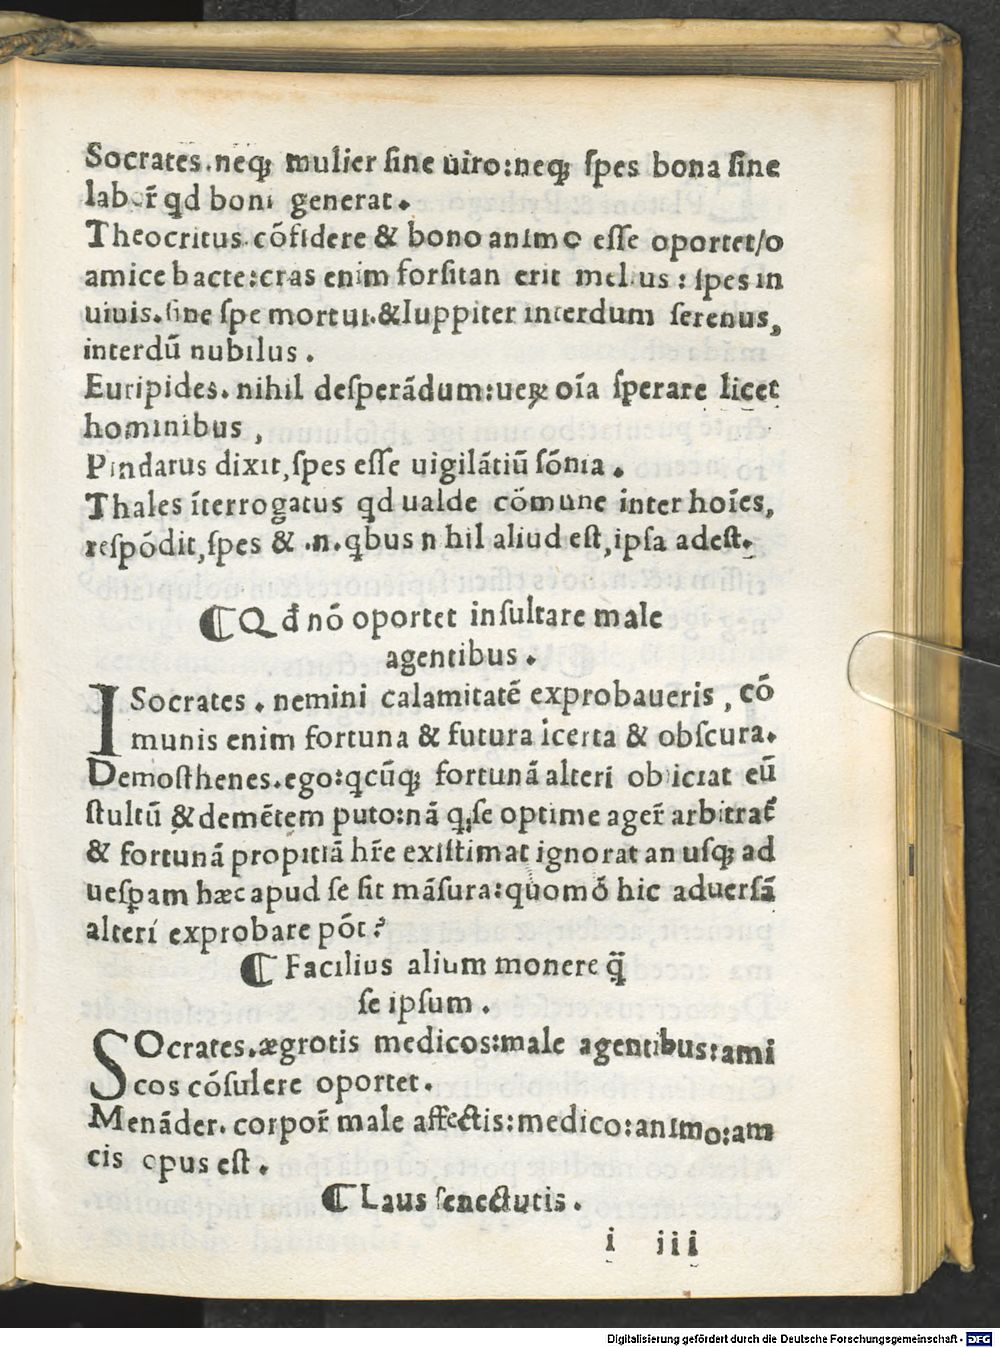 Socrates.neqꝫ mulier ſine uiro:neqꝫ ſpes bona ſine
labor̃ qd boni generat.
Theocritus.cõfidere & bono animo eſſe oportet/o
amice bacte:cras enim forſitan erit melius : ſpes in
uiuis.ſine ſpe mortui.&Iuppiter interdum ſerenus,
interdũ nubilus .
Euripides. nihil deſperãdum:ueꝝ oĩa ſperare licet
hominibus ,
Pindarus dixit,ſpes eſſe uigilãtiũ ſõnia .
Thales ĩterrogatus qd ualde cõmune inter hoĩes,
reſpõdit,ſpes & .n.qbus nihil aliud eſt,ipſa adeſt.
¶ Q đ nõ oportet inſultare male
agentibus .
ISocrates . nemini calamitatẽ exprobaueris , cõ
munis enim fortuna & futura ĩcerta & obſcura.
Demoſthenes.ego:qcũqꝫ fortunã alteri obiiciat eũ
ſtultũ & demẽtem puto:nã q,ſe optime ager̃ arbitrat̃
& fortunã propitiã hr̃e exiſtimat ignorat an uſqꝫ ad
ueſꝑam hæc apud ſe ſit mãſura:quomõ hic aduerſã
alteri exprobare põt?
¶ Facilius alium monere q̃
ſe ipſum .
SOcrates.ægrotis medicos:male agentibus:ami
cos cõſulere oportet.
Menãder. corpor̃ male affectis:medico:animo:am
cis opus eſt .
¶ Laus ſenectutis .
i iii
Digitalisierung gefördert durch die Deutsche Forschungsgemeinschaft - DFG